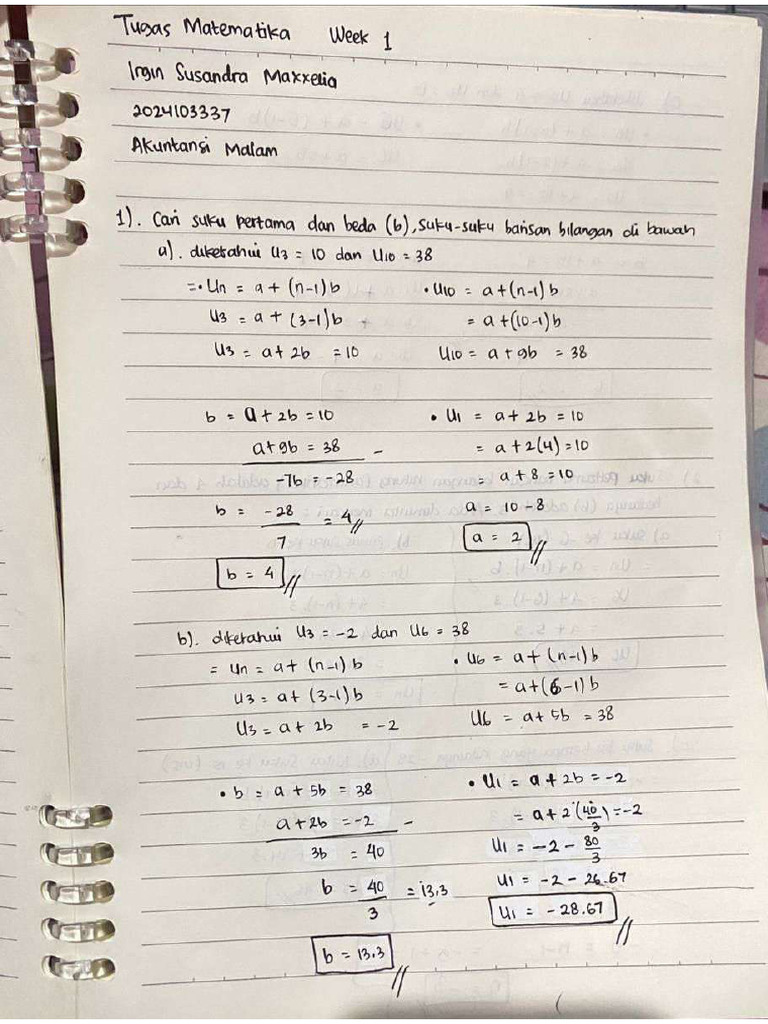 Tugas Matematika Week 1
Irgin Susandra Maxxelia
2024103337
Akuntansi Malam
1). Cari suku pertama dan beda (b), suku-suku barisan bilangan di bawah
a). diketahui U3 = 10 dan U10 = 38
= • Un = a + (n-1) b
U3 = a + (3-1) b
U3 = a + 2b = 10
• U10 = a + (n-1) b
= a + (10-1) b
U10 = a + 9b = 38
b = a + 2b = 10
a + 9b = 38 -
-7b = -28
b = -28/7 = 4 //
b = 4 //
• U1 = a + 2b = 10
= a + 2(4) = 10
= a + 8 = 10
a = 10 - 8
a = 2 //
b). diketahui U3 = -2 dan U6 = 38
= Un = a + (n-1) b
U3 = a + (3-1) b
U3 = a + 2b = -2
• U6 = a + (n-1) b
= a + (6-1) b
U6 = a + 5b = 38
• b = a + 5b = 38
a + 2b = -2 -
3b = 40
b = 40/3 = 13,3
b = 13,3 //
• U1 = a + 2b = -2
= a + 2 (40/3) = -2
U1 = -2 - 80/3
U1 = -2 - 26.67
U1 = -28.67 //